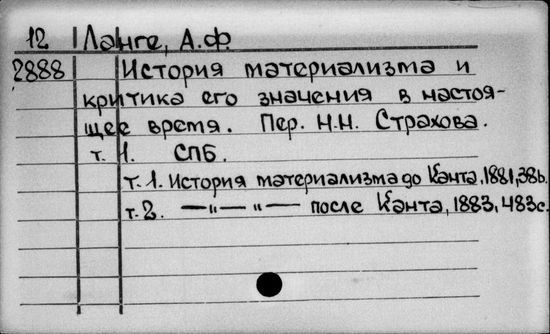 12 Ланге, А.Ф.
2888 История материализма и
критика его значения в настоя-
щее время. Пер. Н.Н. Страхова.
т. 1. СПБ.
т.1. История материализма до Канта, 1881, 38
т.2. —"— "— после Канта, 1883, 483с.